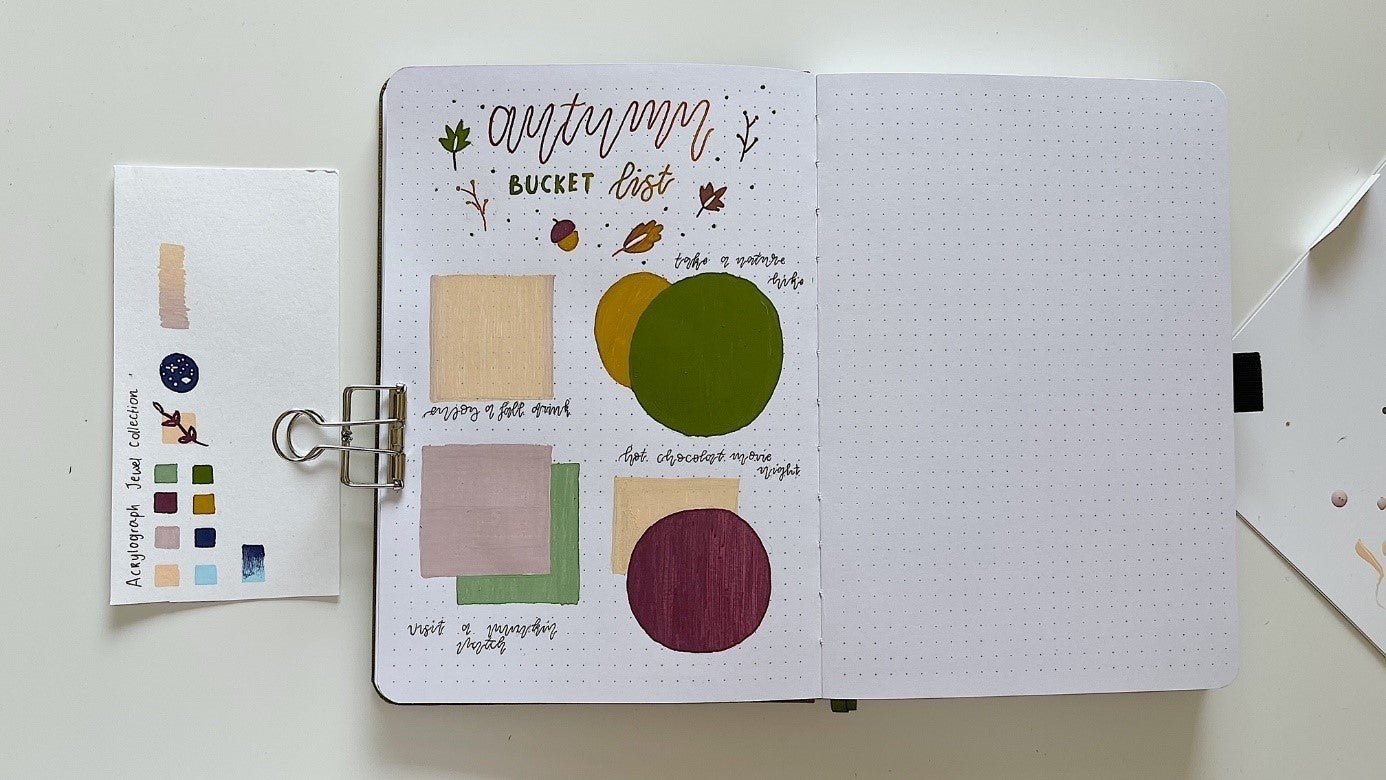 autumn
BUCKET list
take a nature
hike
a fall drink
hot chocolat movie
night
visit a pumpkin
patch
Acrylograph Jewel Collection